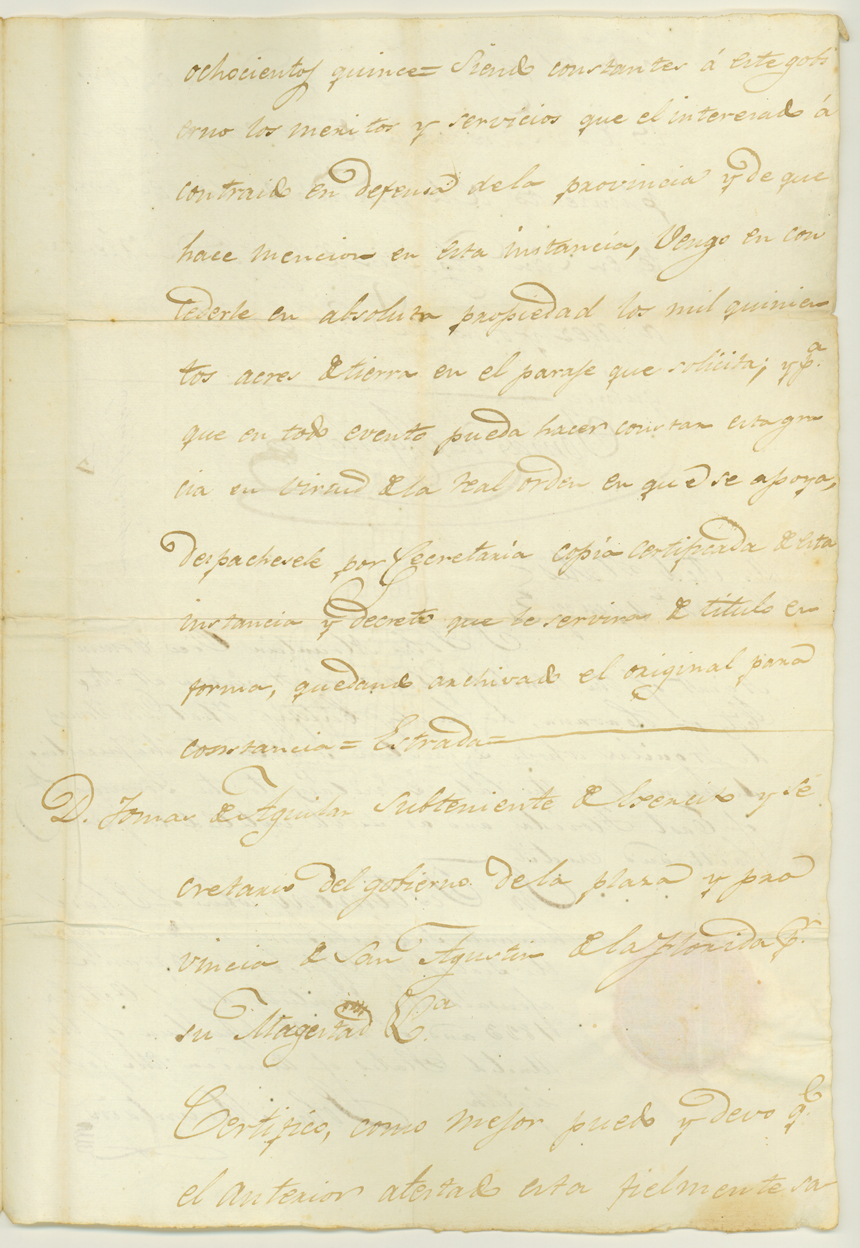 ochocientos quince= Siendo constantes á este gobi
erno los meritos y servicios que el interesado á
contraido en defensa de la provincia y de que
hace mencion en esta instancia, Vengo en con
cederle en absoluta propiedad los mil quinien
tos acres de tierra en el paraje que solicita; y pª.
que en todo evento pueda hacer constar esta gra
cia en virtud de la real orden en que se apoya,
despachesele por Secretaría copia certificada de esta
instancia y decreto que le servira de titulo en
forma, quedando archivado el original para
constancia= Estrada=
D. Tomas de Aguilar Subteniente de Exercito y se
cretario del gobierno de la plaza y pro
vincia de San Agustin de la Florida pr.
su Magestad &ª
Certifico, como mejor puedo y devo qe.
el anterior atestado esta fielmente sa